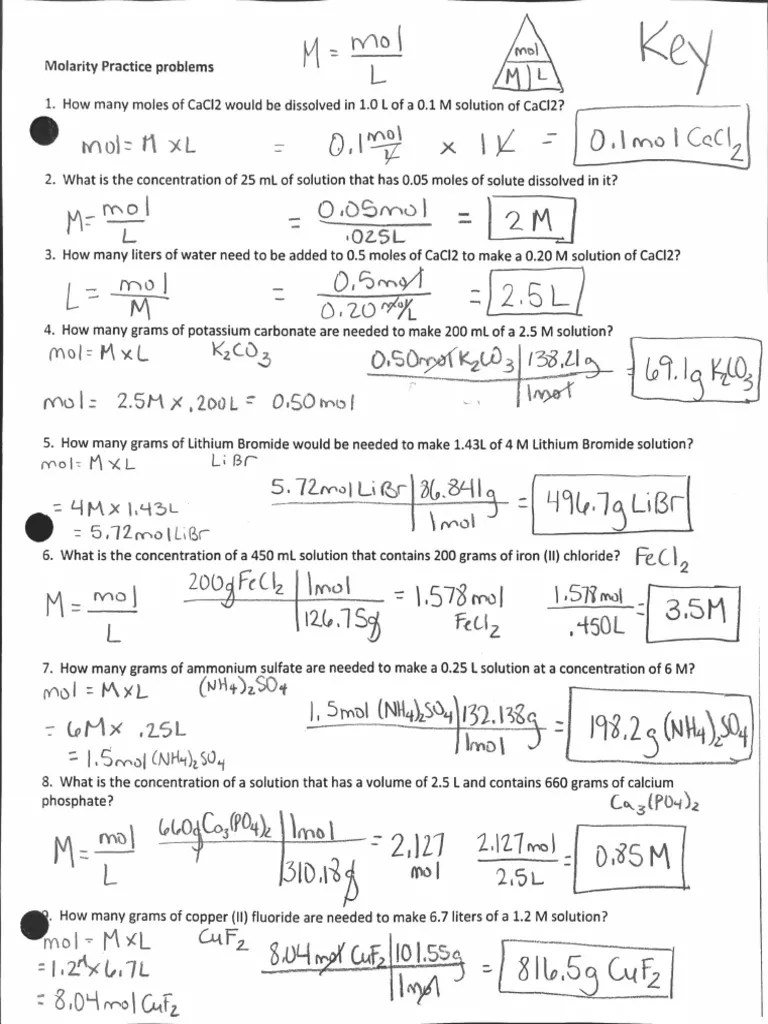 M = mol / L
mol
M | L
Key
Molarity Practice problems
1. How many moles of CaCl2 would be dissolved in 1.0 L of a 0.1 M solution of CaCl2?
mol = M x L = 0.1 mol/L x 1L = 0.1 mol CaCl₂
2. What is the concentration of 25 mL of solution that has 0.05 moles of solute dissolved in it?
M = mol / L = 0.05mol / .025L = 2 M
3. How many liters of water need to be added to 0.5 moles of CaCl2 to make a 0.20 M solution of CaCl2?
L = mol / M = 0.5mol / 0.20 mol/L = 2.5 L
4. How many grams of potassium carbonate are needed to make 200 mL of a 2.5 M solution?
mol = M x L K₂CO₃ 0.50mol K₂CO₃ | 138.21g / 1mol = 69.1g K₂CO₃
mol = 2.5M x .200L = 0.50 mol
5. How many grams of Lithium Bromide would be needed to make 1.43L of 4 M Lithium Bromide solution?
mol = M x L LiBr
= 4M x 1.43L 5.72mol LiBr | 86.841g / 1mol = 496.7g LiBr
= 5.72mol LiBr
6. What is the concentration of a 450 mL solution that contains 200 grams of iron (II) chloride? FeCl₂
M = mol / L 200g FeCl₂ | 1mol / 126.75g = 1.578 mol FeCl₂ 1.578 mol / .450L = 3.5M
7. How many grams of ammonium sulfate are needed to make a 0.25 L solution at a concentration of 6 M?
mol = M x L (NH₄)₂SO₄
= 6M x .25L 1.5mol (NH₄)₂SO₄ | 132.138g / 1mol = 198.2g (NH₄)₂SO₄
= 1.5mol (NH₄)₂SO₄
8. What is the concentration of a solution that has a volume of 2.5 L and contains 660 grams of calcium
phosphate? Ca₃(PO₄)₂
M = mol / L 660g Ca₃(PO₄)₂ | 1mol / 310.18g = 2.127 mol 2.127 mol / 2.5L = 0.85 M
. How many grams of copper (II) fluoride are needed to make 6.7 liters of a 1.2 M solution?
mol = M x L CuF₂
= 1.2M x 6.7L 8.04 mol CuF₂ | 101.55g / 1mol = 816.5g CuF₂
= 8.04 mol CuF₂